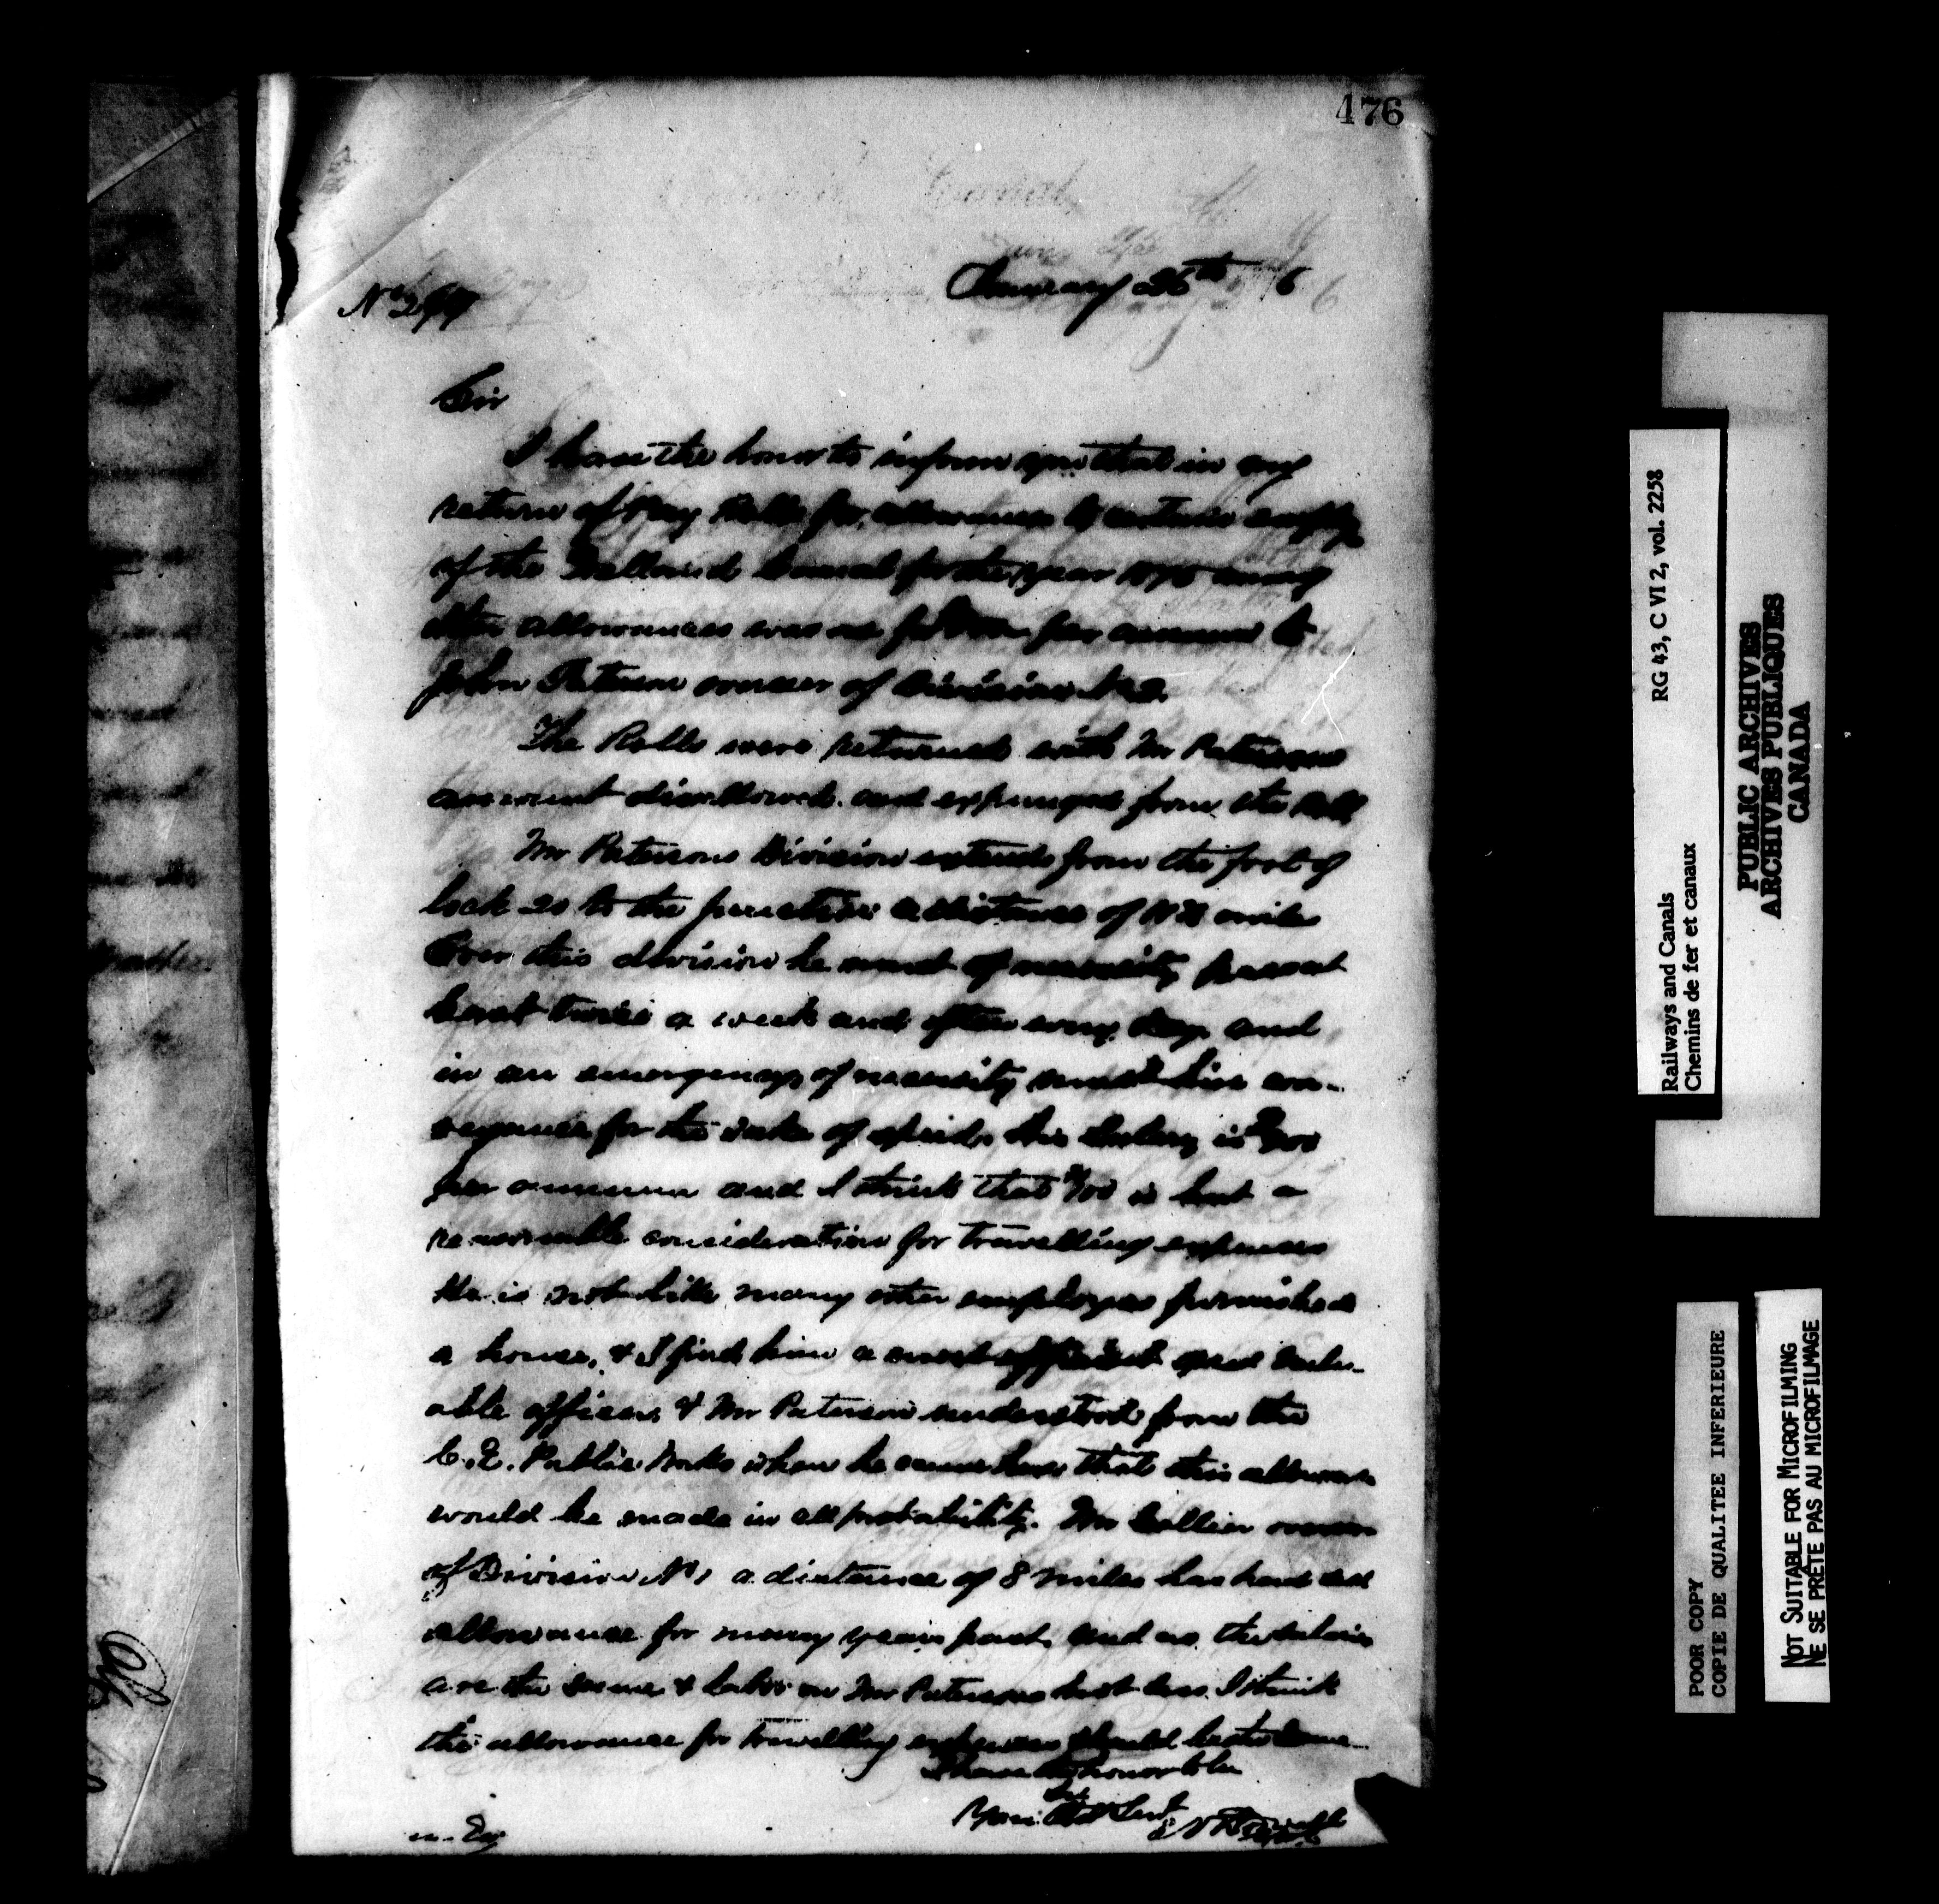 476
January 26th 6
Sir
I have the honor to inform you that in my
return of Pay Rolls for allowances to certain
of the Welland Canal for the year 1875 among
other allowances was one for per annum to
John Paterson overseer of Division No 2.
The Rolls were returned with Mr Patersons
amount disallowed and expunged from the Roll
Mr Patersons Division extends from the foot of
lock 20 to the junction a distance of miles
Over this division he must of necessity pass at
least twice a week and often every day, and
in an emergency of necessity must hire con-
veyance for the sake of speed. His Salary is
per annum and I think that $100 is but a
reasonable consideration for travelling expenses
He is not like many other employees furnished
a house, & I find him a most efficient and valu-
able officer, & Mr Paterson understood from the
C.E. Public Works when he came here that this allowance
would be made in all probability. Mr Collier overseer
of Division No 1 a distance of 8 miles has had an
allowance for many years past, and as the salaries
are the same & labor on Mr Patersons not less I think
the allowance for travelling expenses should be the same
I have the honor to be
Sir
Your Obt Servt
Esq
RG 43, C VI 2, vol. 2258
Railways and Canals
Chemins de fer et canaux
PUBLIC ARCHIVES
ARCHIVES PUBLIQUES
CANADA
POOR COPY
COPIE DE QUALITEE INFERIEURE
NOT SUITABLE FOR MICROFILMING
NE SE PRÊTE PAS AU MICROFILMAGE